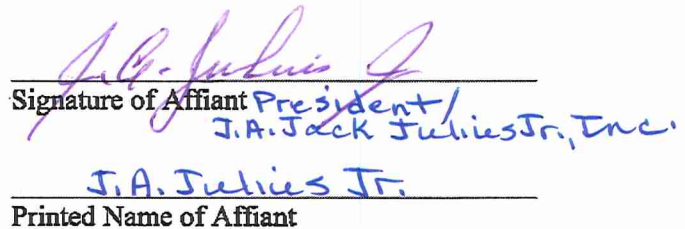 J.A. Julius Jr
Signature of Affiant President/
J.A. Jack Julius Jr., Inc.
J.A. Julius Jr.
Printed Name of Affiant